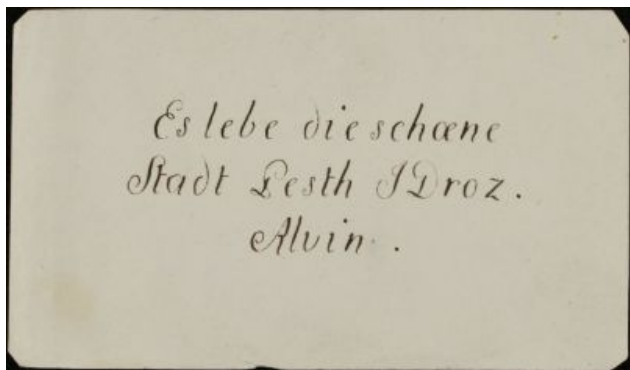 Es lebe die schœne
Stadt Pesth J Droz.
Alvin.